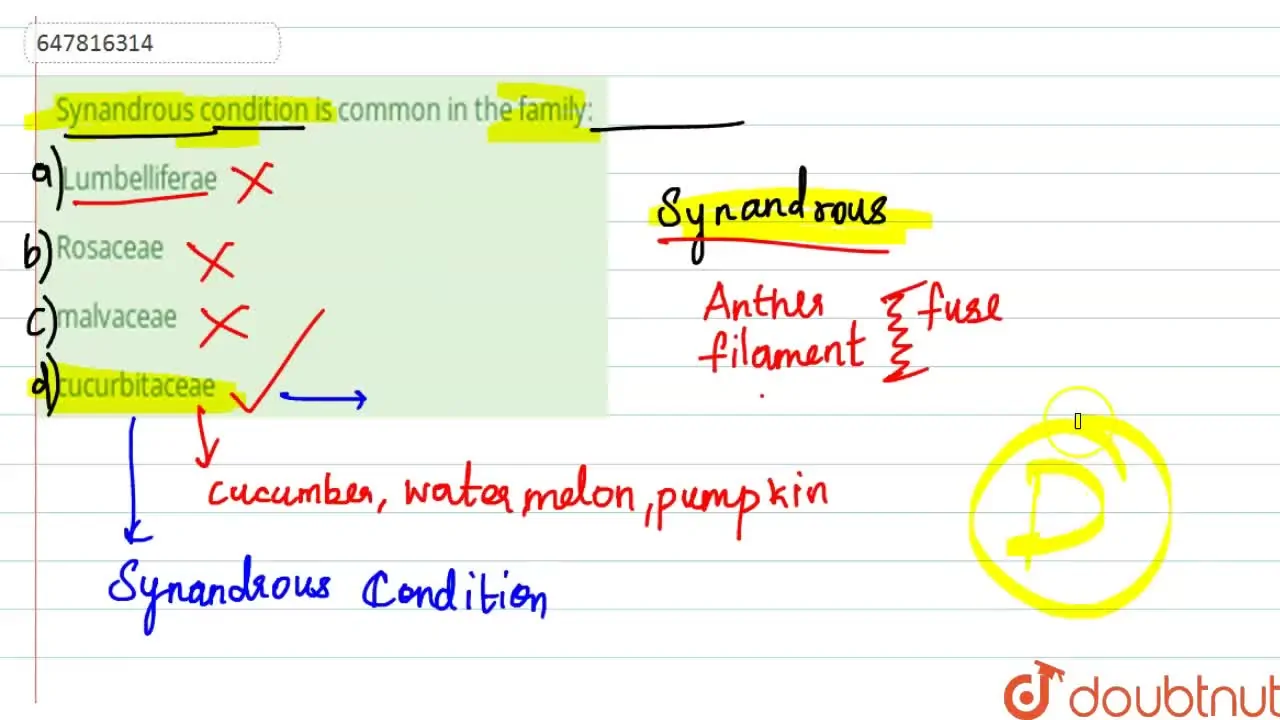 647816314
Synandrous condition is common in the family:
a) Lumbelliferae
b) Rosaceae
c) malvaceae
d) cucurbitaceae
Synandrous
Anther
filament
fuse
cucumber, watermelon, pumpkin
Synandrous Condition
D
doubtnut